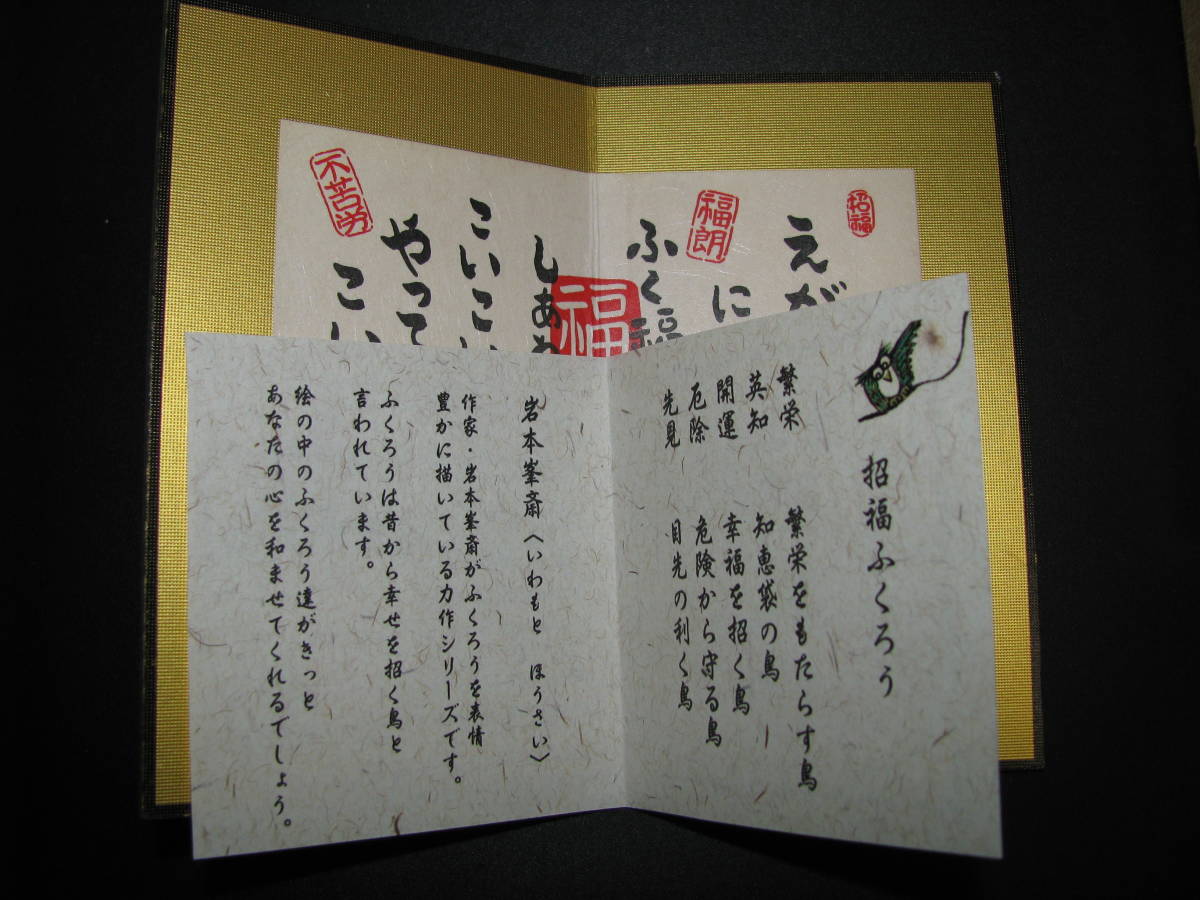 招福
えが
に
福朗
ふく福
福
しあわ
こいこい
やって
こい
不苦労
招福ふくろう
繁栄 繁栄をもたらす鳥
英知 知恵袋の鳥
開運 幸福を招く鳥
厄除 危険から守る鳥
先見 目先の利く鳥
岩本峯斎〈いわもと ほうさい〉
作家・岩本峯斎がふくろうを表情
豊かに描いている力作シリーズです。
ふくろうは昔から幸せを招く鳥と
言われています。
絵の中のふくろう達がきっと
あなたの心を和ませてくれるでしょう。